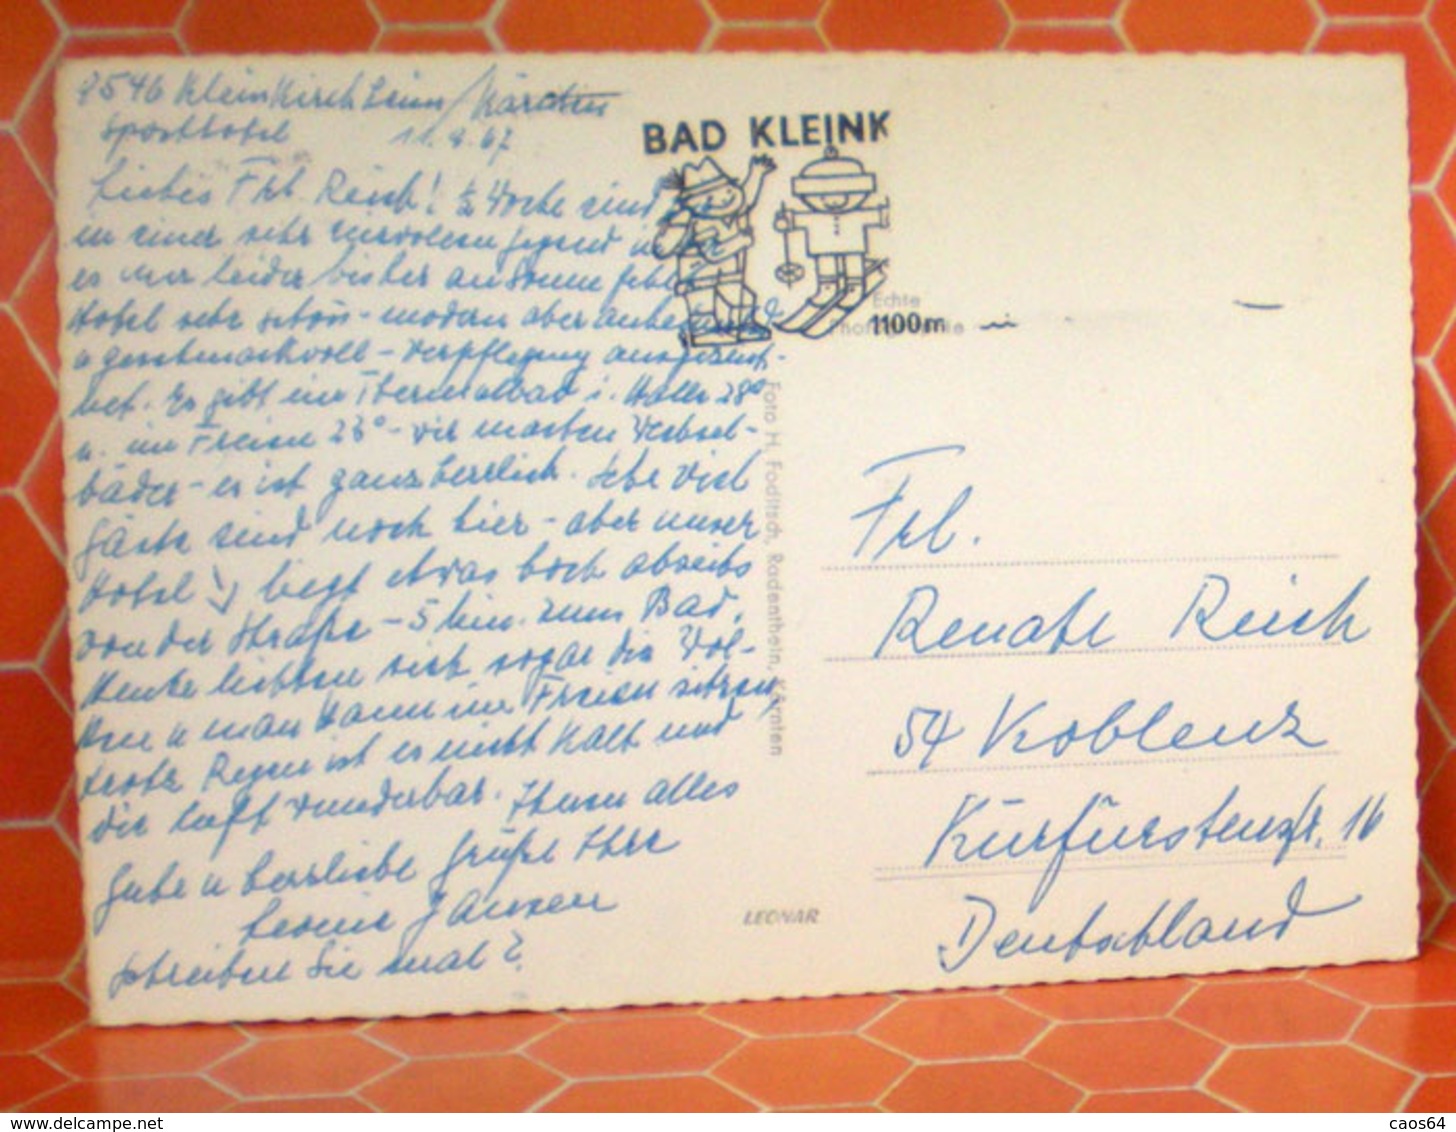 9546 Kleinkirchheim/Kärnten
Sporthotel 11.9.67
Liebes Frl. Reich! ½ Woche sind wir
in einer sehr reizvollen Gegend in der
es nur leider bisher an Sonne fehlt
Hotel sehr schön - modern aber anheimelnd
u geschmackvoll - Verpflegung ausgezeich-
net. Es gibt ein Thermalbad i. Halle 28°
u. im Freien 26° - wir machen Wechsel-
bäder - es ist ganz herrlich. Sehr viel
Gäste sind noch hier - aber unser
Hotel liegt etwas hoch abseits
von der Straße - 5 Min. zum Bad.
Heute lichten sich sogar die Wol-
ken u man kann im Freien sitzen,
trotz Regen ist es nicht kalt und
die Luft wunderbar. Ihnen alles
Gute u herzliche Grüße Ihre
Jansen
Schreiben Sie mal?
BAD KLEINK
1100m
Echte
Photographie
Foto H. Foditsch, Radenthein, Kärnten
Frl.
Renate Reich
54 Koblenz
Kurfürstenstr. 16
Deutschland
LEONAR
caos64